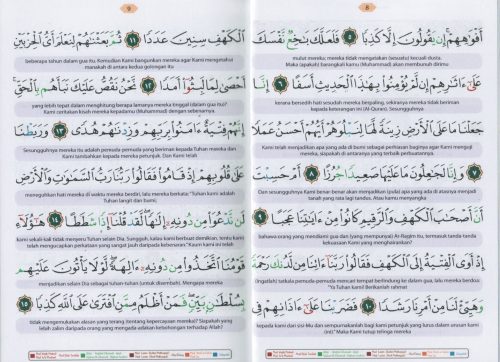 8
أَفْوَٰهِهِمْ إِن يَقُولُونَ إِلَّا كَذِبًا ٥ فَلَعَلَّكَ بَٰخِعٌ نَّفْسَكَ
mulut mereka; mereka tidak mengatakan (sesuatu) kecuali dusta.
Maka (apakah) barangkali kamu (Muhammad) akan membunuh dirimu
عَلَىٰٓ ءَاثَٰرِهِمْ إِن لَّمْ يُؤْمِنُوا۟ بِهَٰذَا ٱلْحَدِيثِ أَسَفًا ٦ إِنَّا
kerana bersedih hati sesudah mereka berpaling, sekiranya mereka tidak beriman
kepada keterangan ini (Al-Quran). Sesungguhnya
جَعَلْنَا مَا عَلَى ٱلْأَرْضِ زِينَةً لَّهَا لِنَبْلُوَهُمْ أَيُّهُمْ أَحْسَنُ عَمَلًا
Kami telah menjadikan apa yang ada di bumi sebagai perhiasan baginya agar Kami menguji
mereka, siapakah di antaranya yang terbaik perbuatannya.
٧ وَإِنَّا لَجَٰعِلُونَ مَا عَلَيْهَا صَعِيدًا جُرُزًا ٨ أَمْ حَسِبْتَ
Dan sesungguhnya Kami benar benar akan menjadikan (pula) apa yang ada di atasnya menjadi
tanah yang rata lagi tandus. Atau kamu menyangka
أَنَّ أَصْحَٰبَ ٱلْكَهْفِ وَٱلرَّقِيمِ كَانُوا۟ مِنْ ءَايَٰتِنَا عَجَبًا ٩
bahawa orang yang mendiami gua dan (yang mempunyai) Al-Raqim itu, termasuk tanda-tanda
kekuasaan Kami yang menghairankan?
إِذْ أَوَى ٱلْفِتْيَةُ إِلَى ٱلْكَهْفِ فَقَالُوا۟ رَبَّنَآ ءَاتِنَا مِن لَّدُنكَ رَحْمَةً
(Ingatlah) tatkala pemuda-pemuda mencari tempat berlindung ke dalam gua, lalu mereka berdoa:
"Ya Tuhan kami! Berikanlah rahmat
وَهَيِّئْ لَنَا مِنْ أَمْرِنَا رَشَدًا ١٠ فَضَرَبْنَا عَلَىٰٓ ءَاذَانِهِمْ فِى
kepada kami dari sisi-Mu dan sempurnakanlah bagi kami petunjuk yang lurus dalam urusan kami
(ini)." Maka Kami tutup telinga mereka
9
ٱلْكَهْفِ سِنِينَ عَدَدًا ١١ ثُمَّ بَعَثْنَٰهُمْ لِنَعْلَمَ أَىُّ ٱلْحِزْبَيْنِ
beberapa tahun dalam gua itu. Kemudian Kami bangunkan mereka agar Kami mengetahui
manakah di antara kedua golongan itu
أَحْصَىٰ لِمَا لَبِثُوٓا۟ أَمَدًا ١٢ نَّحْنُ نَقُصُّ عَلَيْكَ نَبَأَهُم بِٱلْحَقِّ
yang lebih tepat dalam menghitung berapa lamanya mereka tinggal (dalam gua itu)?
Kami ceritakan kisah mereka kepadamu (Muhammad) dengan sebenarnya.
إِنَّهُمْ فِتْيَةٌ ءَامَنُوا۟ بِرَبِّهِمْ وَزِدْنَٰهُمْ هُدًى ١٣ وَرَبَطْنَا
Sesungguhnya mereka itu adalah pemuda-pemuda yang beriman kepada Tuhan mereka dan
Kami tambahkan kepada mereka petunjuk. Dan Kami telah
عَلَىٰ قُلُوبِهِمْ إِذْ قَامُوا۟ فَقَالُوا۟ رَبُّنَا رَبُّ ٱلسَّمَٰوَٰتِ وَٱلْأَرْضِ
meneguhkan hati mereka di waktu mereka berdiri, lalu mereka berkata: "Tuhan kami adalah
Tuhan langit dan bumi;
لَن نَّدْعُوَا۟ مِن دُونِهِۦٓ إِلَٰهًا لَّقَدْ قُلْنَآ إِذًا شَطَطًا ١٤ هَٰٓؤُلَآءِ
kami sekali-kali tidak menyeru Tuhan selain Dia. Sungguh, kalau kami berbuat demikian, tentu kami
telah mengucapkan perkataan yang sangat jauh daripada kebenaran." Kaum kami ini telah
قَوْمُنَا ٱتَّخَذُوا۟ مِن دُونِهِۦٓ ءَالِهَةً لَّوْلَا يَأْتُونَ عَلَيْهِم
menjadikan selain Dia sebagai tuhan-tuhan (untuk disembah). Mengapa mereka
بِسُلْطَٰنٍۭ بَيِّنٍ فَمَنْ أَظْلَمُ مِمَّنِ ٱفْتَرَىٰ عَلَى ٱللَّهِ كَذِبًا ١٥
tidak mengemukakan alasan yang terang (tentang kepercayaan mereka)? Siapakah yang
lebih zalim daripada orang yang mengada-adakan kebohongan terhadap Allah?